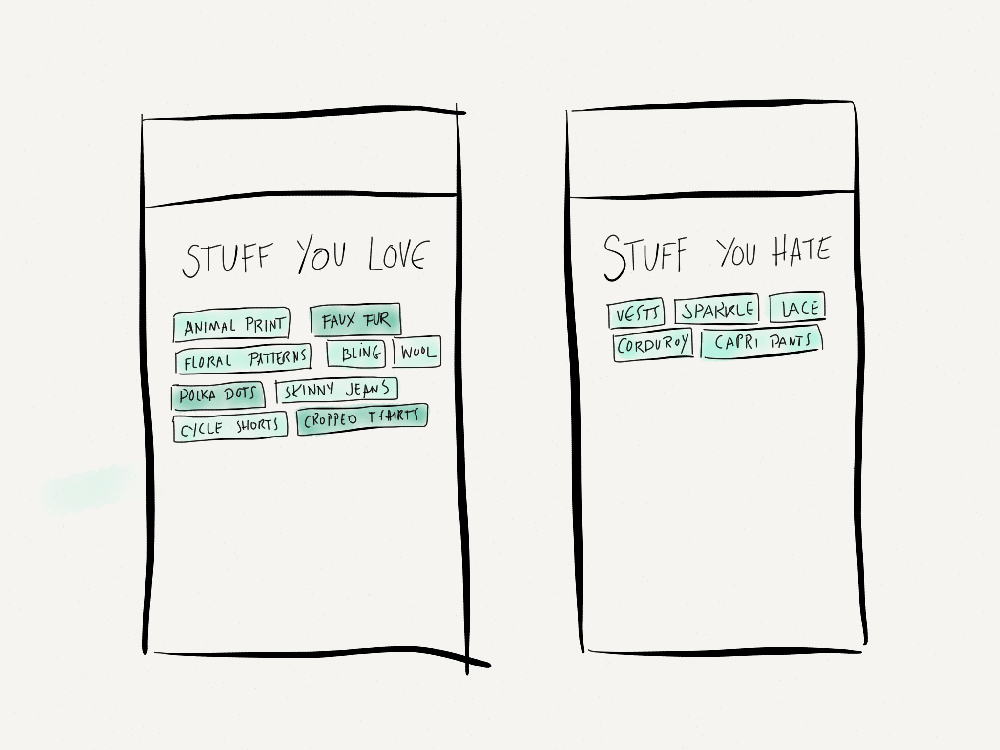 STUFF YOU LOVE
ANIMAL PRINT FAUX FUR
FLORAL PATTERNS BLING WOOL
POLKA DOTS SKINNY JEANS
CYCLE SHORTS CROPPED TSHIRTS
STUFF YOU HATE
VESTS SPARKLE LACE
CORDUROY CAPRI PANTS